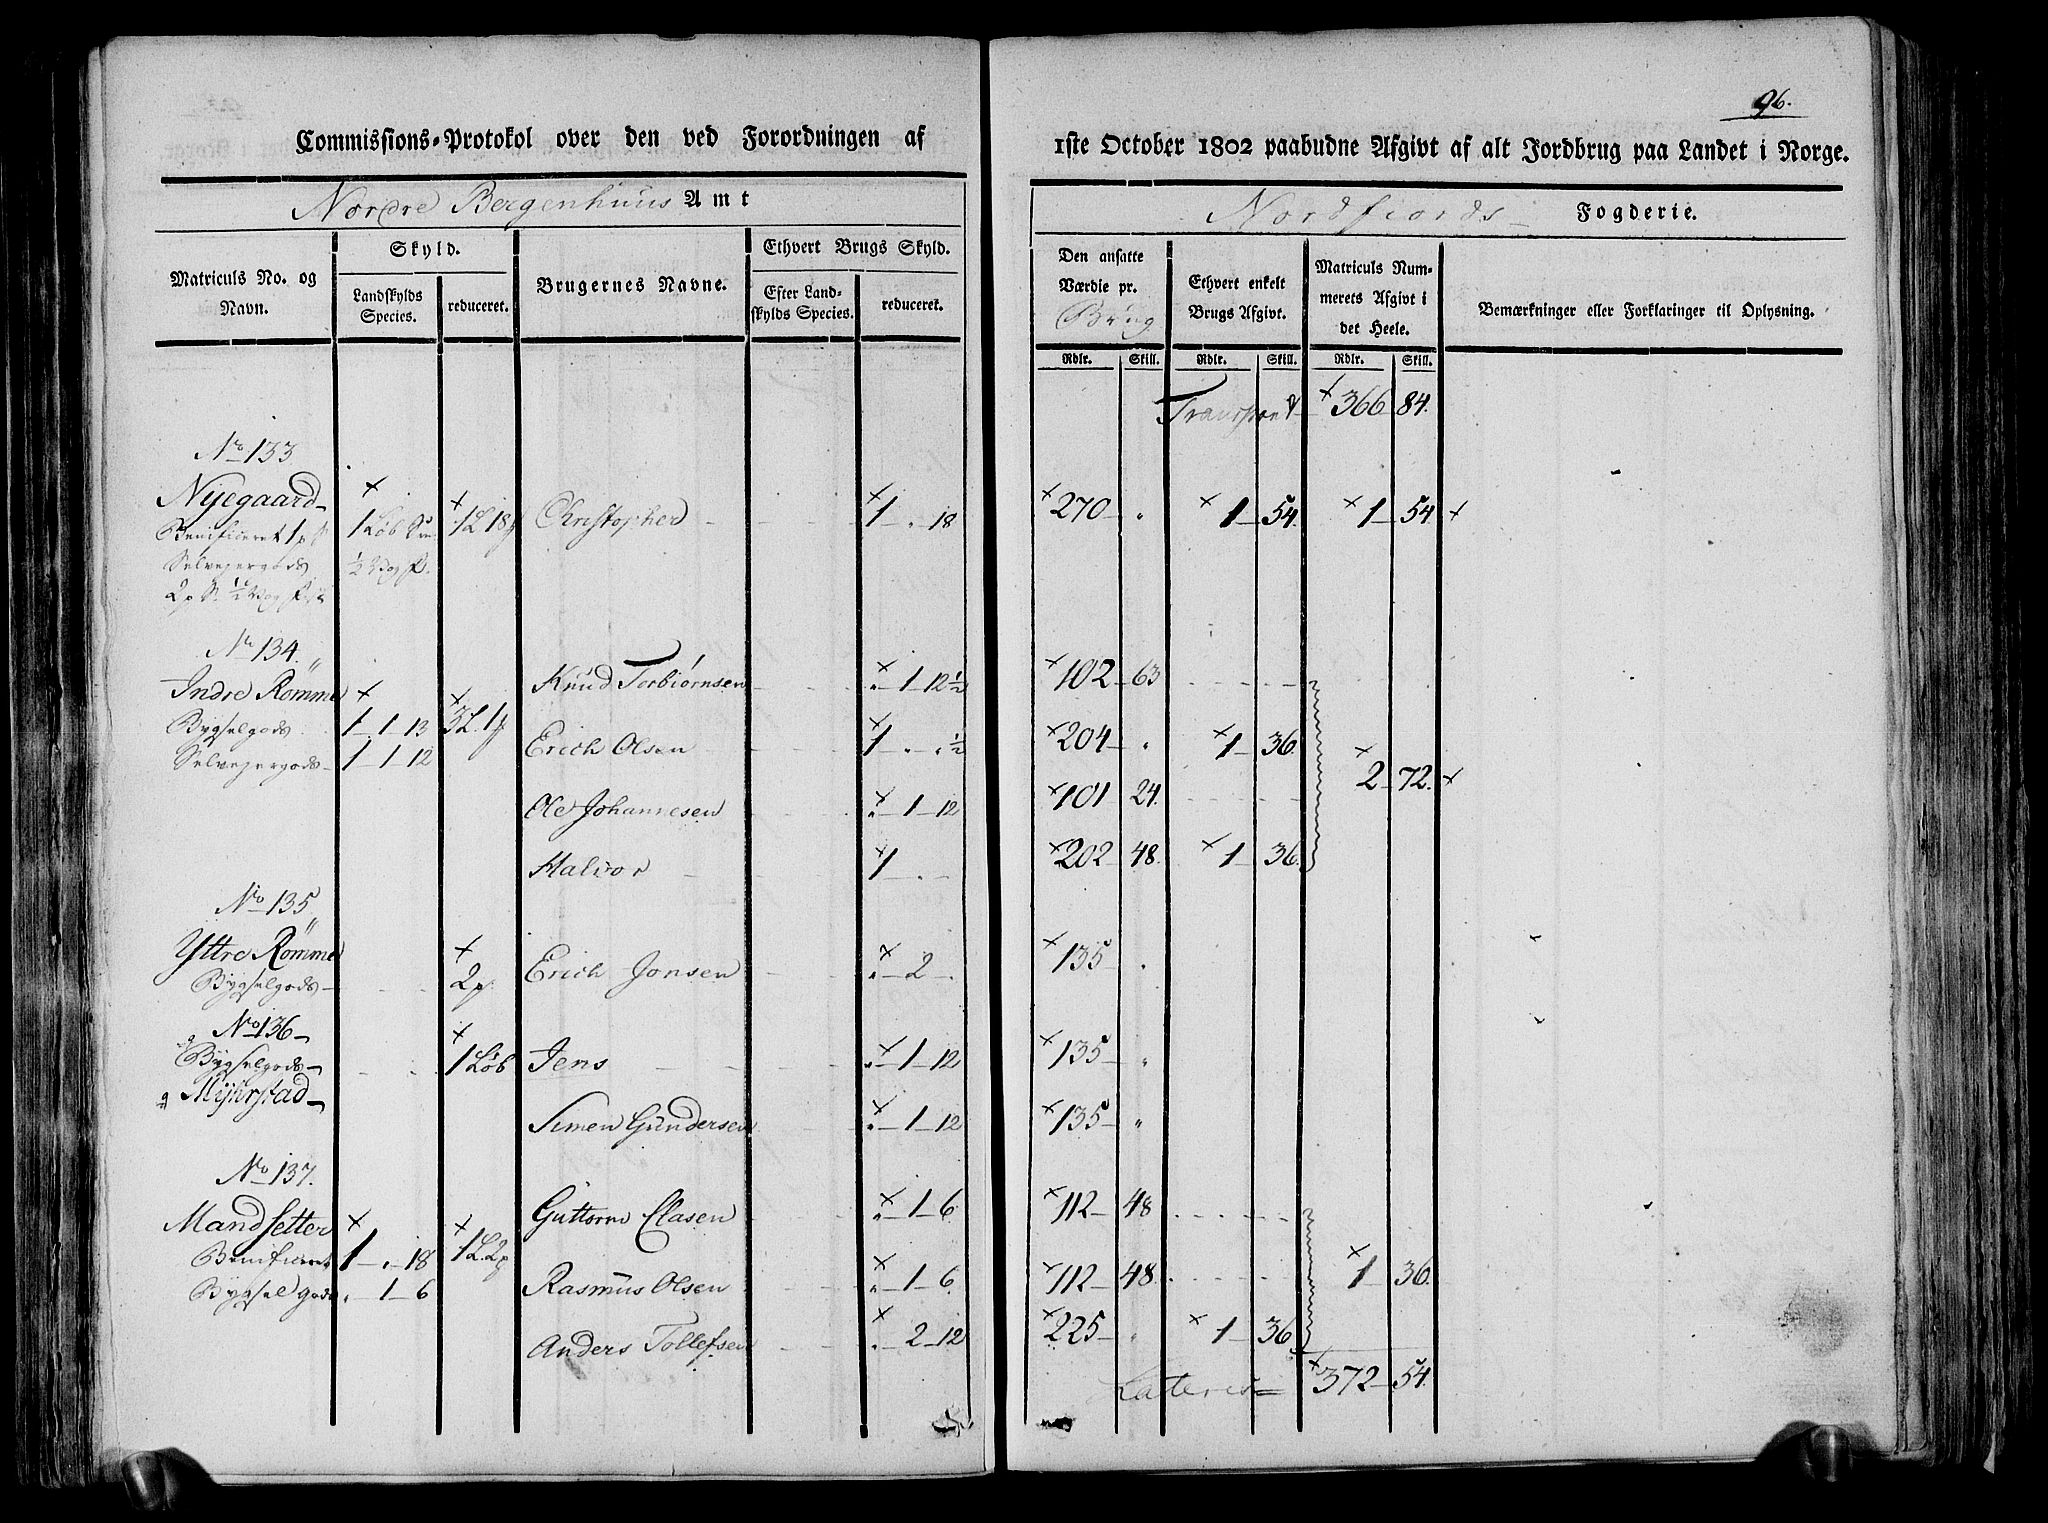 96.
Commissions-Protokol over den ved Forordningen af 1ste October 1802 paabudne Afgivt af alt Jordbrug paa Landet i Norge.
Nordre Bergenhuus Amt
Nordfiords Fogderie.
Matriculs No. og Navn.
Skyld.
Landskylds Species.
reduceret.
Brugernes Navne.
Ethvert Brugs Skyld.
Efter Landskylds Species.
reduceret.
Den ansatte Værdie pr. Brug
Ethvert enkelt Brugs Afgivt.
Matriculs Nummerets Afgivt i det Heele.
Bemærkninger eller Forklaringer til Oplysning.
Rdlr. Skill. Rdlr. Skill. Rdlr. Skill.
Transport × 366 84.
No 133
Nyegaard × × 1 L 18 Christopher × 1 „ 18 × 270 „ × 1 54. × 1 54 ×
Benificeret 1 p S 1 Løb
Selvejergods ½ Vog
2 p S. ½ Vog
No 134.
Indre Römme × Knud Torbiørnsen × „ 1 12½ × 102 63
Bygselgods 1 1 13 × 3 L. 1 p
Selvejergods 1 1 12 Erich Olsen × 1 „ „ ½ × 204 „ × 1 36.
× 2 72. ×
Ole Johannesen × „ 1 12 × 101 24.
Halvor × 1 „ × 202 48. × 1 36
No 135
Yttre Römme × 2 p Erich Jonsen × „ 2 „ × 135 „
Bygselgods
No 136
Bygselgods × 1 Løb Jens × „ 1 12 × 135 „
Myhrstad
Simen Gundersen × „ 1 12 × 135 „
No 137.
Mandsetter × × 1 L. 2 p Guttorm Clasen × „ 1 6 × 112 48
Benificeret 1 „ 18
Bygselgods „ 1 6 Rasmus Olsen × „ 1 6 × 112 48. × 1 36.
Anders Tollefsen × „ 2 12 × 225 „ × 1 36
Lateris × 372 54.